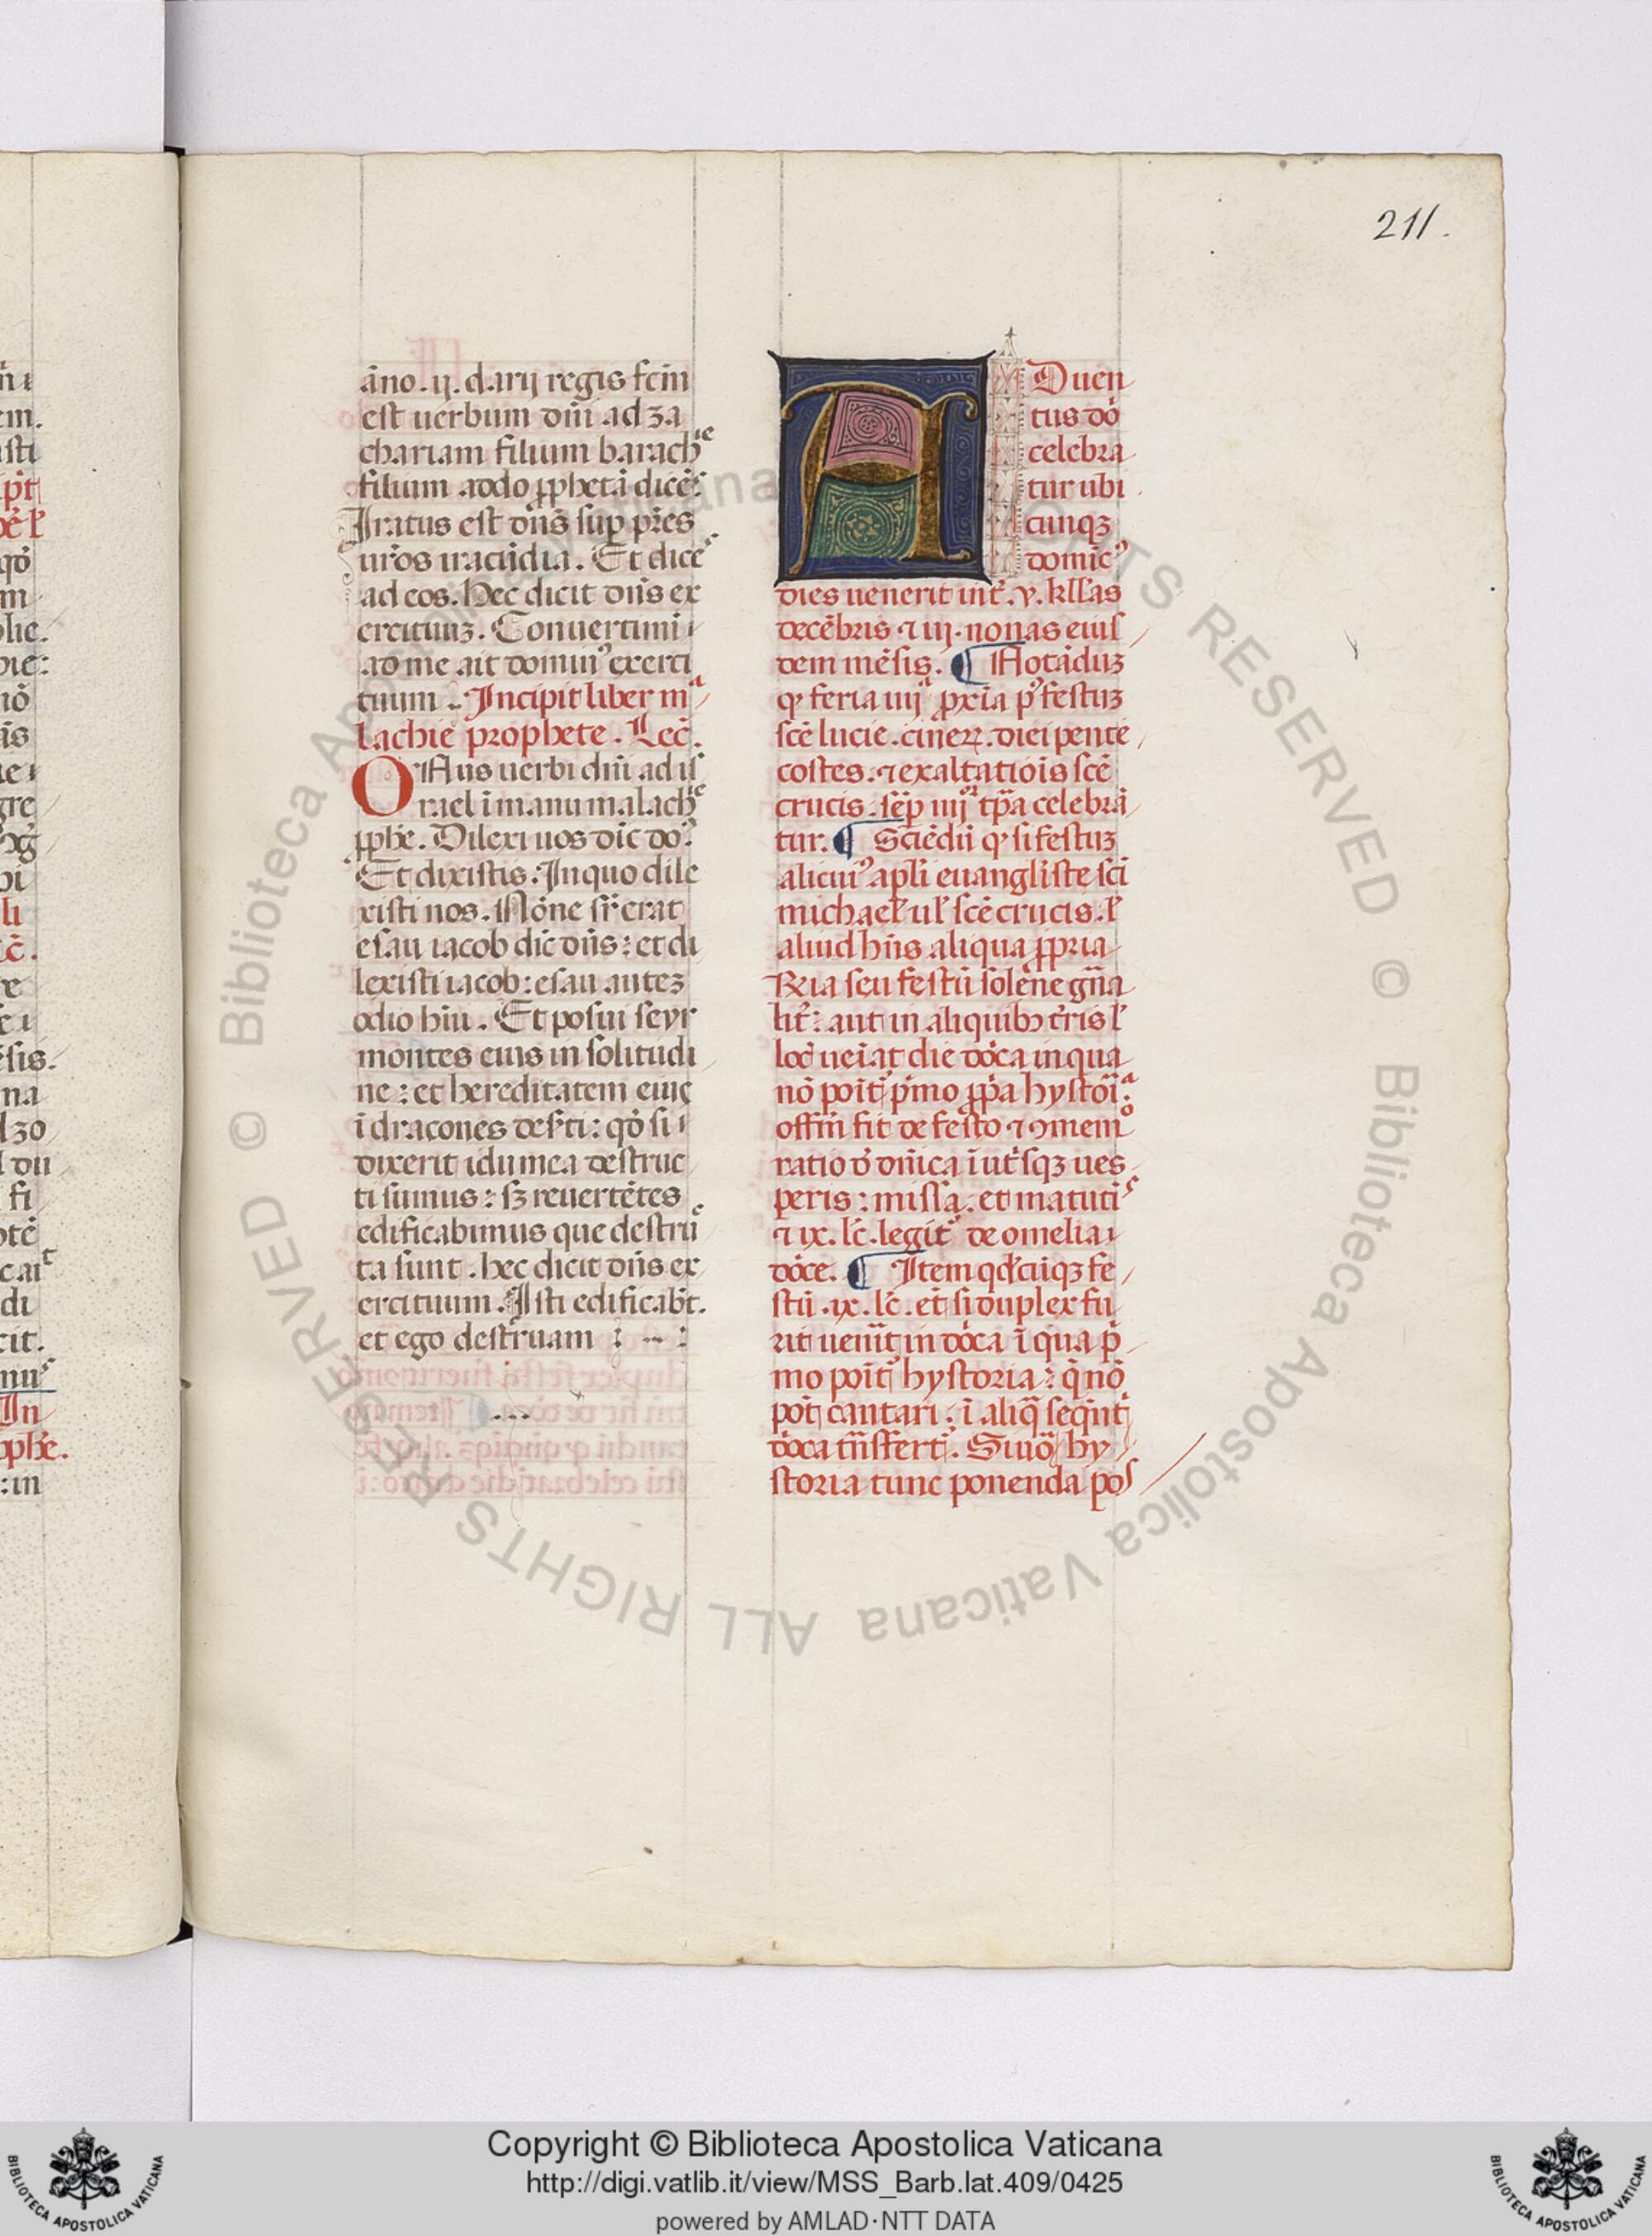 211.
āno . ij . darij regis fcm̄
est uerbum dn̄i ad za
chariam filium barachͤ
filium addo ꝓphetā dicēs:
Iratus est dn̄s sup̄ pr̄es
ur̄os iracūdia . Et diceˢ
ad eos . Hec dicit dn̄s ex
ercituuꝫ . Conuertimī
ad me ait dominꝰ exerci
tuum .. Incipit liber mᵃ
lachie prophete . Lec̄ .
ONus uerbi dn̄i ad iſ
rael ī manu malachͤ
ꝓph̄e . Dilexi uos dic̄ doꝰ
Et dixistis : In quo dile
xisti nos . Nōne fr̄ erat
esau iacob dic̄ dn̄s : et di
lexisti iacob : esau auteꝫ
odio hīui . Et posui seyr
montes eius in solitudi
ne : et hereditatem eius
ī dracones des̄ti : qd̓ si
dixerit idumea destruc
ti sumus : sꝫ reuertētes
edificabimus que destruͨ
ta sunt . hec dicit dn̄s ex
ercituum . Isti edificabt̄ .
et ego destruam : .. :
ADuen
tus dō
celebra
tur ubi
cunqꝫ
domicꝰ
dies uenerit int̄ . v . kll̄as
decēbris ⁊ iij . nonas eiuſ
dem mēsis . ¶ Notāduꝫ
ꝙ feria iiijᵃ ꝓxīa pꝰ festuꝫ
sc̄e lucie . cineꝝ . diei pente
costes . ⁊ exaltatiōis sc̄e
crucis . sēp iiijᵒʳ tp̄a celebrā
tur . ¶ Sciēdū ꝙ si festuꝫ
alicuiꝰ apl̄i euangl̄iste sc̄i
michael̄ ul̄ sc̄e crucis . l̄
aliud hn̄s aliqua ꝓpria
Ria seu festū solēne gn̄a
lit̄ : aut in aliquibꝫ t̄ris l̄
loc̄ ueīat die dōca in qua
nō poīt̄ p̄mo ꝓp̄a hystoīᵃ :
offm̄ fit de festo ⁊ ꝯmemᵒ
ratio d̓ dn̄ica ī ut̄sqꝫ ues
peris : missa . et matutīˢ
⁊ ix . lc̄ . legit̄ de omelia
dōce . ¶ Item qd̄cūqꝫ fe
stū . ix . lc̄ . et̄ si duplex fu
rit uenīt̄ in dōca ī qua p̄
mo poīt̄ hystoria : q̄ nō
pōt cantari . ī aliq̄ seq̄nt̄
dōca trn̄sfert̄ . Siuō hy
storia tunc ponenda poſ
Copyright © Biblioteca Apostolica Vaticana
http://digi.vatlib.it/view/MSS_Barb.lat.409/0425
powered by AMLAD·NTT DATA